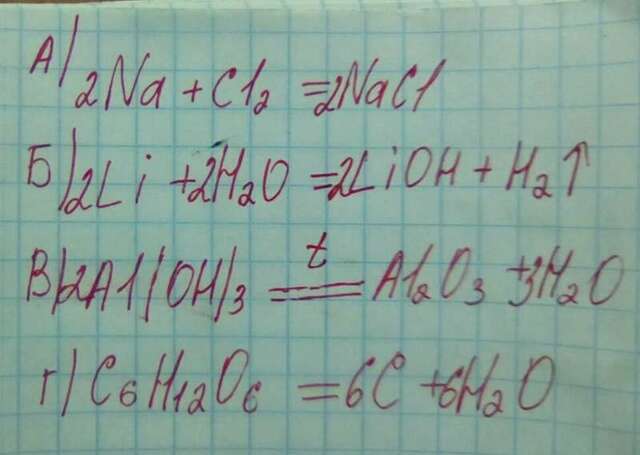 А) 2Na + Cl₂ = 2NaCl
Б) 2Li + 2H₂O = 2LiOH + H₂↑
t
В) 2Al(OH)₃ = Al₂O₃ + 3H₂O
г) C₆H₁₂O₆ = 6C + 6H₂O